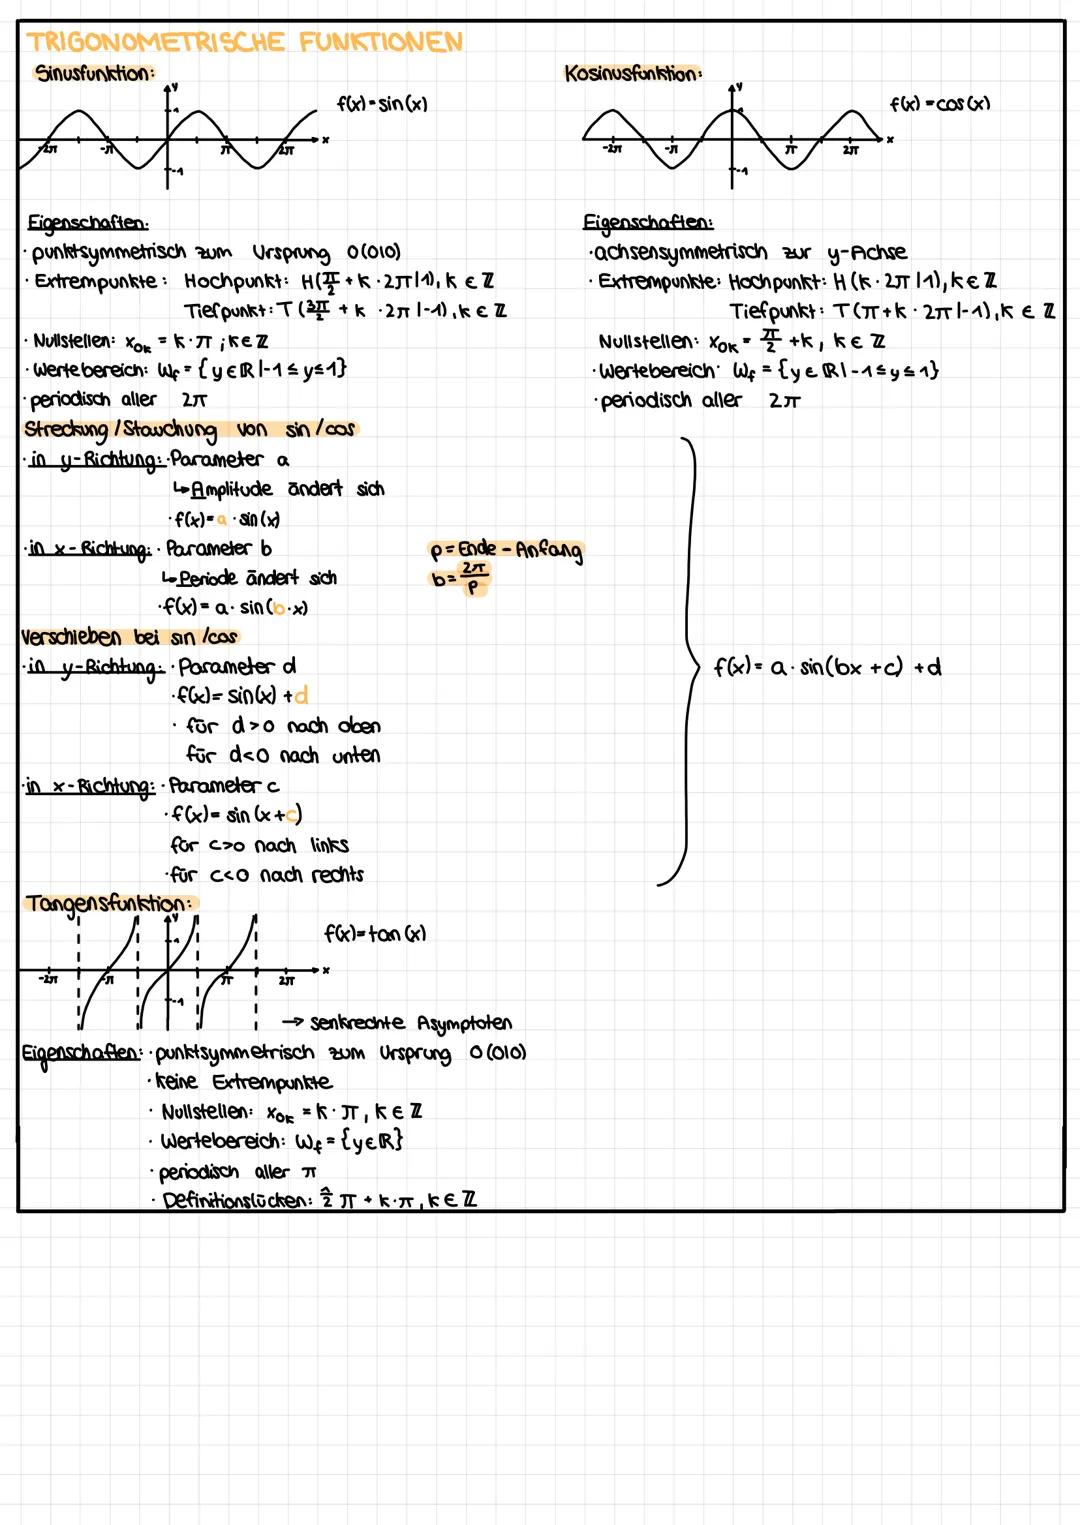 TRIGONOMETRISCHE FUNKTIONEN
Sinusfunktion:
y
1
f(x)=sin(x)
-2π -π π 2π x
-1
Eigenschaften:
· punktsymmetrisch zum Ursprung O(0|0)
· Extrempunkte: Hochpunkt: H(π/2 + k · 2π|1), k ∈ ℤ
Tiefpunkt: T(3π/2 + k · 2π|-1), k ∈ ℤ
· Nullstellen: x₀ₖ = k·π ; k∈ℤ
· Wertebereich: Wf = {y∈ℝ|-1≤y≤1}
· periodisch aller 2π
Kosinusfunktion:
y
1
f(x)=cos(x)
-2π -π π 2π x
-1
Eigenschaften:
· achsensymmetrisch zur y-Achse
· Extrempunkte: Hochpunkt: H(k·2π|1), k∈ℤ
Tiefpunkt: T(π+k·2π|-1), k ∈ ℤ
Nullstellen: x₀ₖ = π/2 +k, k∈ ℤ
· Wertebereich: Wf = {y∈ℝ|-1≤y≤1}
· periodisch aller 2π
Streckung/Stauchung von sin/cos
· in y-Richtung: · Parameter a
↳ Amplitude ändert sich
· f(x)= a · sin(x)
· in x-Richtung: · Parameter b
↳ Periode ändert sich
· f(x)= a· sin(b·x)
p=Ende-Anfang
b= 2π/p
Verschieben bei sin/cos
· in y-Richtung: · Parameter d
· f(x)= sin(x) +d
· für d>0 nach oben
für d<0 nach unten
· in x-Richtung: · Parameter c
· f(x)= sin(x+c)
für c>0 nach links
· für c<0 nach rechts
f(x)= a· sin(bx +c) +d
Tangensfunktion:
y
1
f(x)=tan(x)
-2π -π π 2π x
-1
→ senkrechte Asymptoten
Eigenschaften: · punktsymmetrisch zum Ursprung O(0|0)
· keine Extrempunkte
· Nullstellen: x₀ₖ = k·π, k∈ ℤ
· Wertebereich: Wf = {y∈ℝ}
· periodisch aller π
· Definitionslücken: 1/2 π + k·π, k∈ℤ